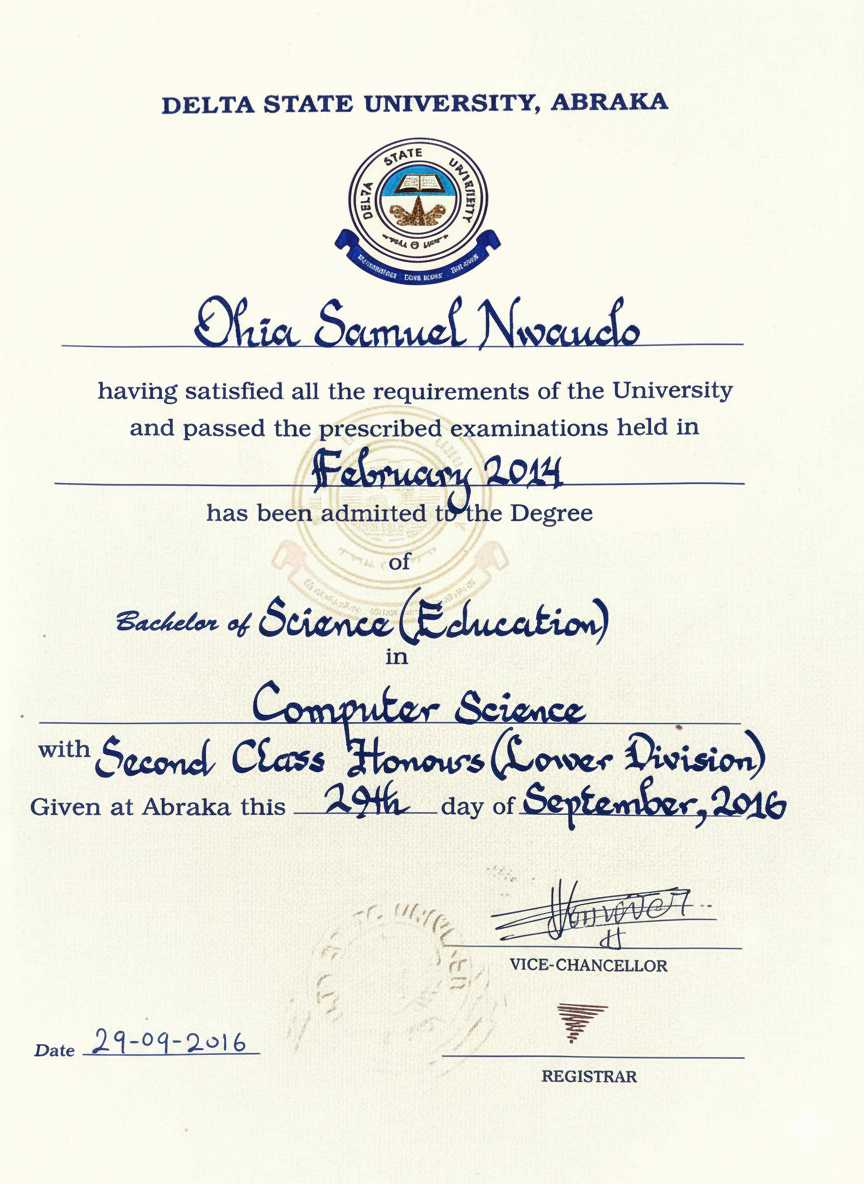 DELTA STATE UNIVERSITY, ABRAKA
DELTA STATE UNIVERSITY
Ohia Samuel Nwaudo
having satisfied all the requirements of the University
and passed the prescribed examinations held in
February 2014
has been admitted to the Degree
of
Bachelor of Science (Education)
in
Computer Science
with Second Class Honours (Lower Division)
Given at Abraka this 29th day of September, 2016
VICE-CHANCELLOR
Date 29-09-2016
REGISTRAR